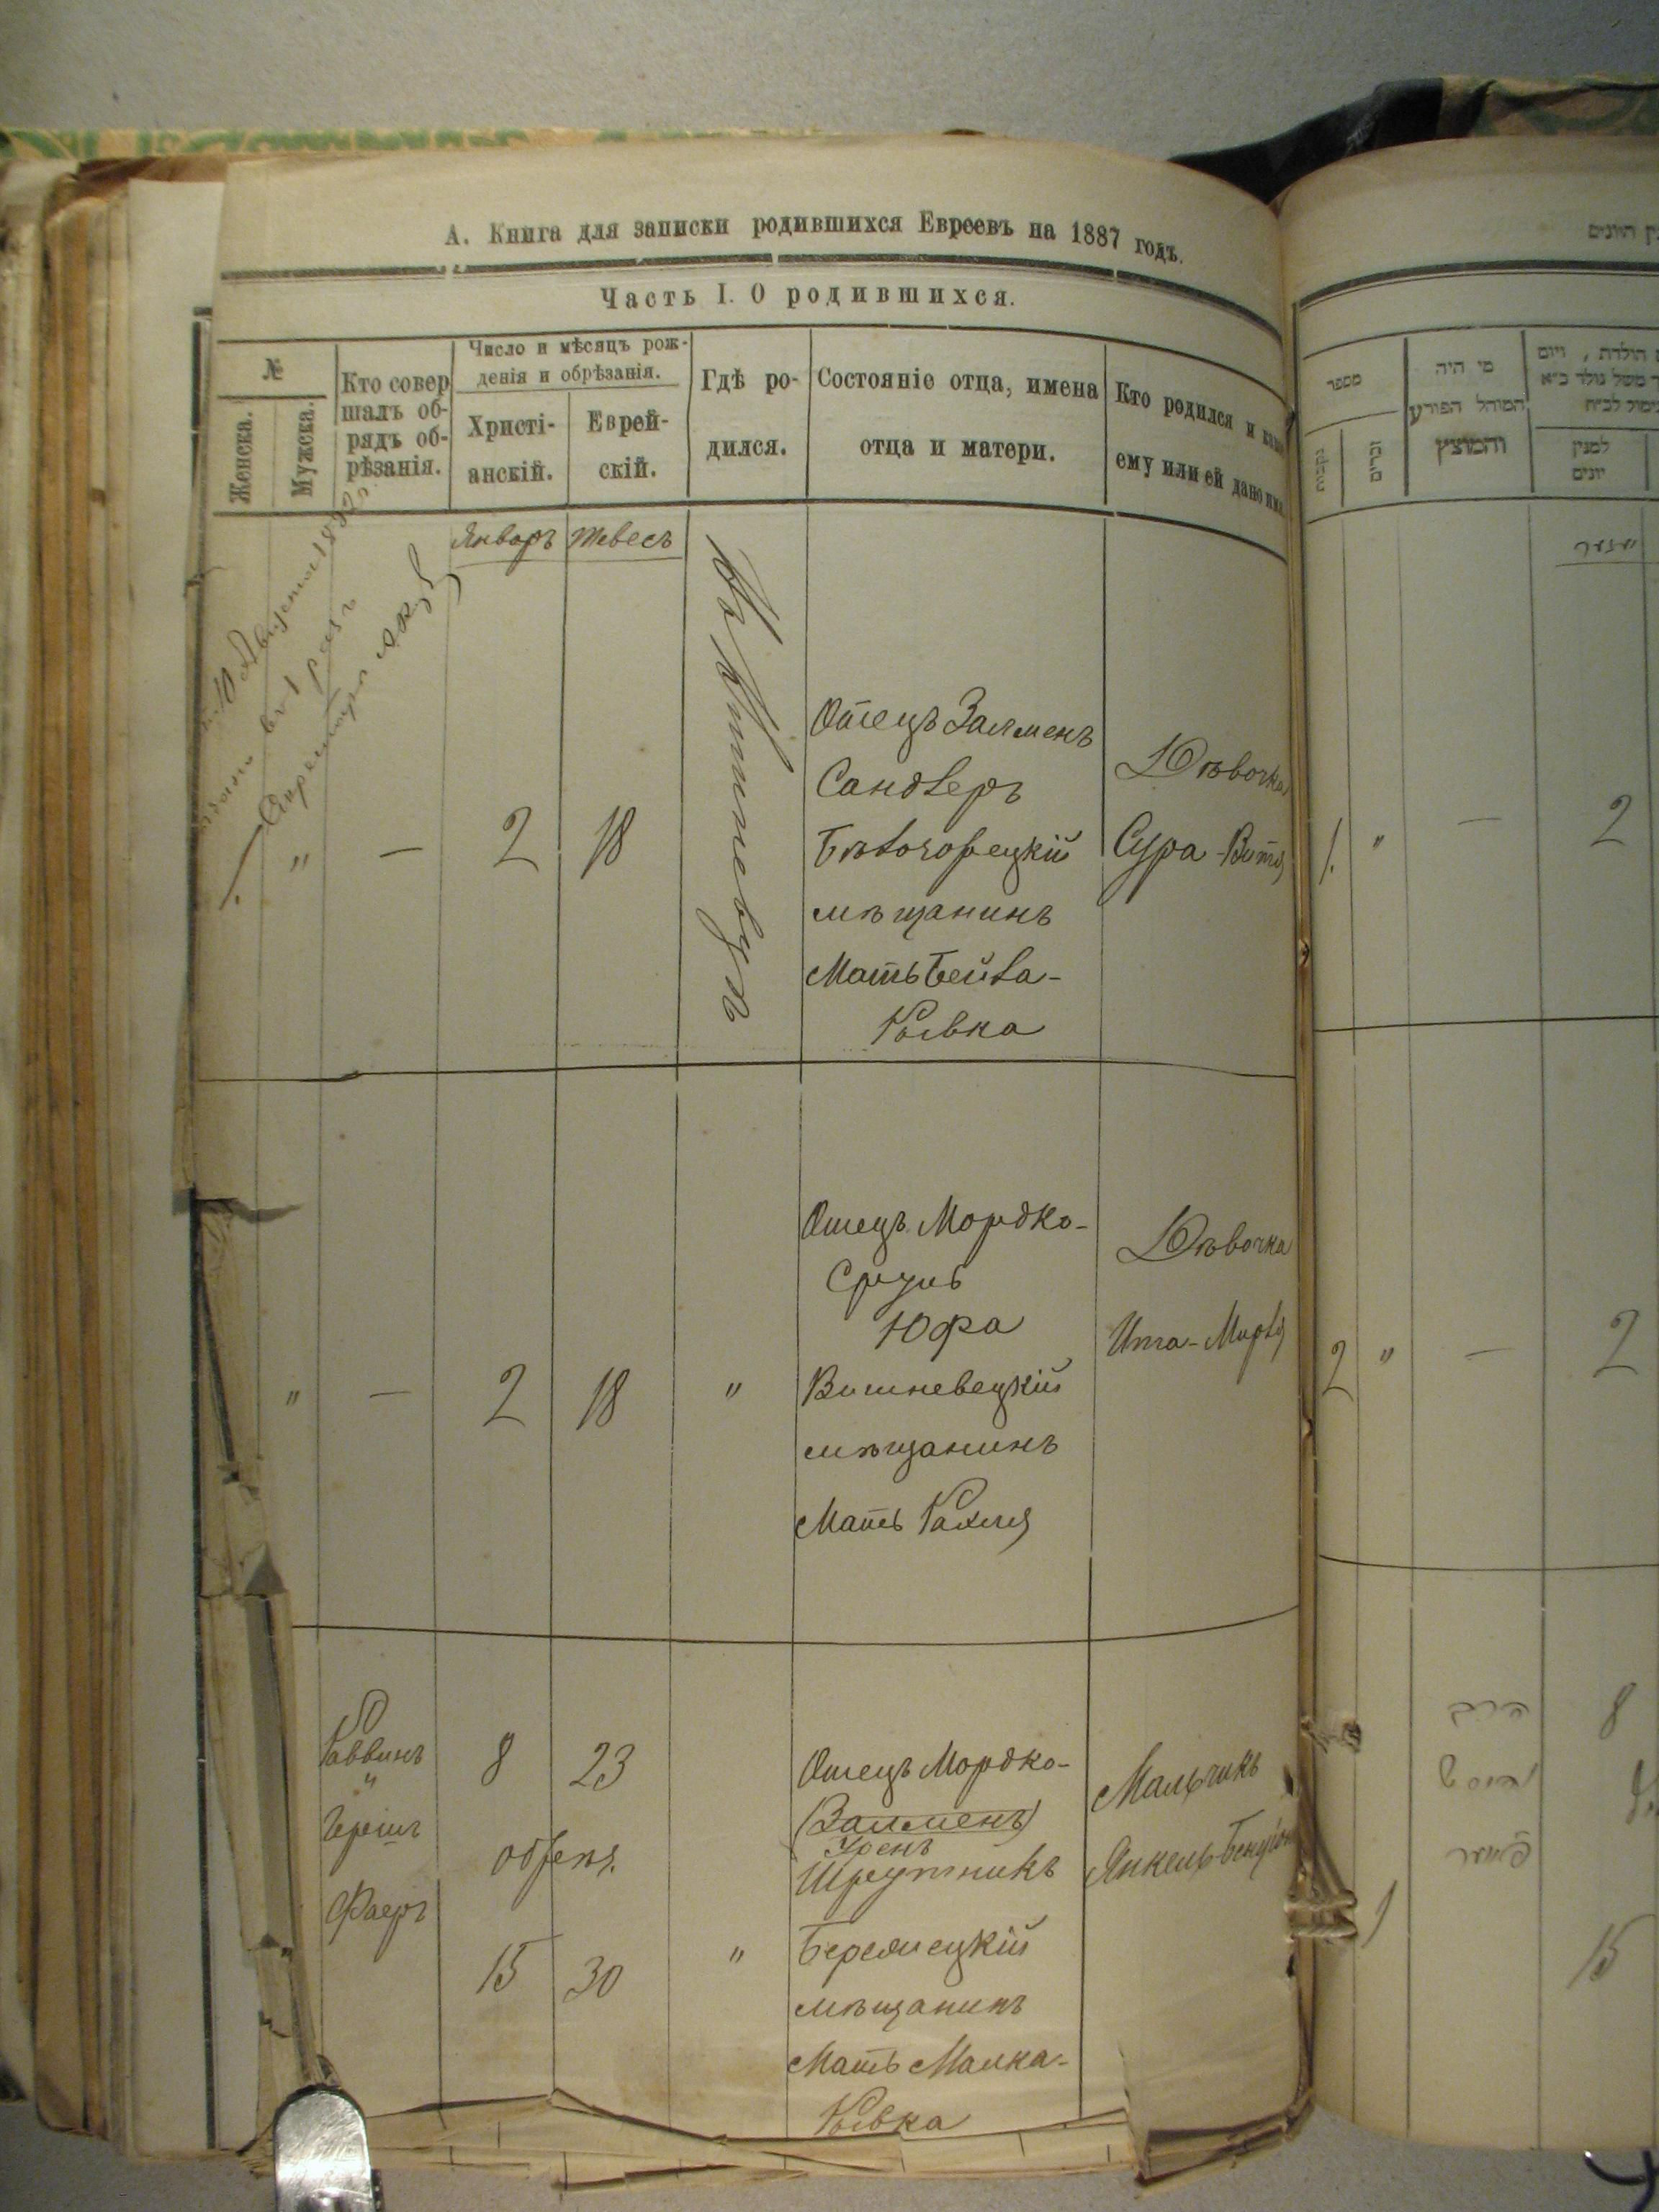 А. Книга для записки родившихся Евреевъ на 1887 годъ.
Часть I. О родившихся.
№
Женска.
Мужска.
Кто совер
шалъ об-
рядъ об-
рѣзанія.
Число и мѣсяцъ рож-
денія и обрѣзанія.
Христі-
анскій.
Еврей-
скій.
Гдѣ ро-
дился.
Состояніе отца, имена
отца и матери.
Кто родился и
ему или ей дано
Январь Тевесъ
1. " — 2 18
Отецъ Залменъ
Сандлеръ
Бѣлогорецкій
мѣщанинъ
Мать Бейла-
Ривка
Дѣвочка
Сура-Витя
" — 2 18 "
Отецъ Мордко-
Срулъ
Юфа
Вишневецкій
мѣщанинъ
Мать Рахля
Дѣвочка
Ита-Мирля
Раввинъ
"
Гершъ
Фаеръ
8 23
обрѣз.
15 30 "
Отецъ Мордко-
(Залменъ)
Шрутникъ
Бережецкій
мѣщанинъ
Мать Малка-
Ривка
Мальчикъ
Янкель-Бенціонъ
מספר
נקבות
זכרים
מי היה
המוהל הפורע
והמוצץ
למנין
יונים
1. " — 2
2 " — 2
הרב
8
1
15